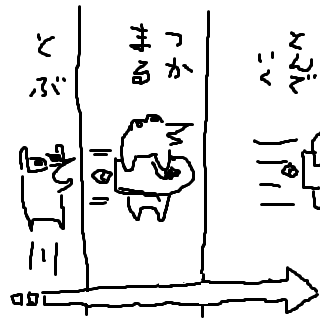 とぶ
つか
まる
とんで
いく